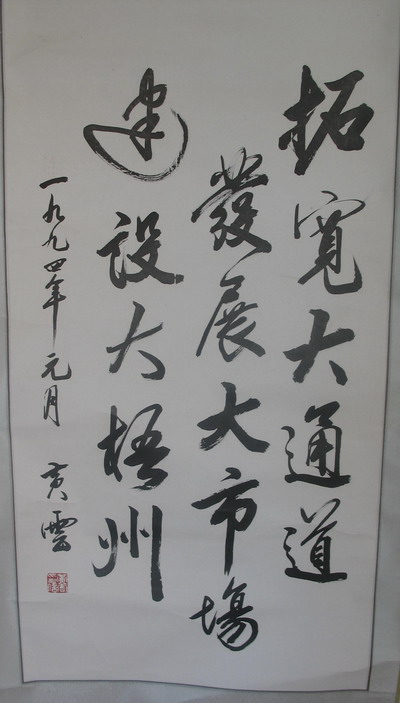 拓寬大通道
發展大市場
建設大梧州
一九九四年元月 黄雲